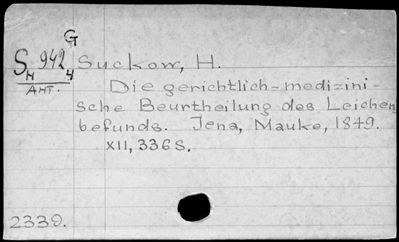 G
S 942 Suckow, H.
H 4
АНТ.
Die gerichtlich-medizini-
sche Beurtheilung des Leichen
befunds. Jena, Mauke, 1849.
XII, 336 S.
2339.